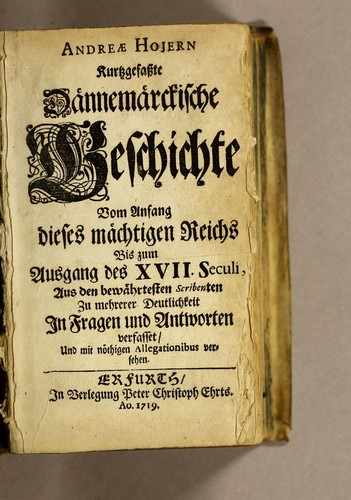 ANDREÆ HOJERN
Kurtzgefaßte
Dännemärckische
Geschichte
Vom Anfang
dieses mächtigen Reichs
Bis zum
Ausgang des XVII. Seculi,
Aus den bewährtesten Scribenten
Zu mehrerer Deutlichkeit
In Fragen und Antworten
verfasset/
Und mit nöthigen Allegationibus ver-
sehen.
ERFURTH/
In Verlegung Peter Christoph Ehrts.
Ao. 1719.